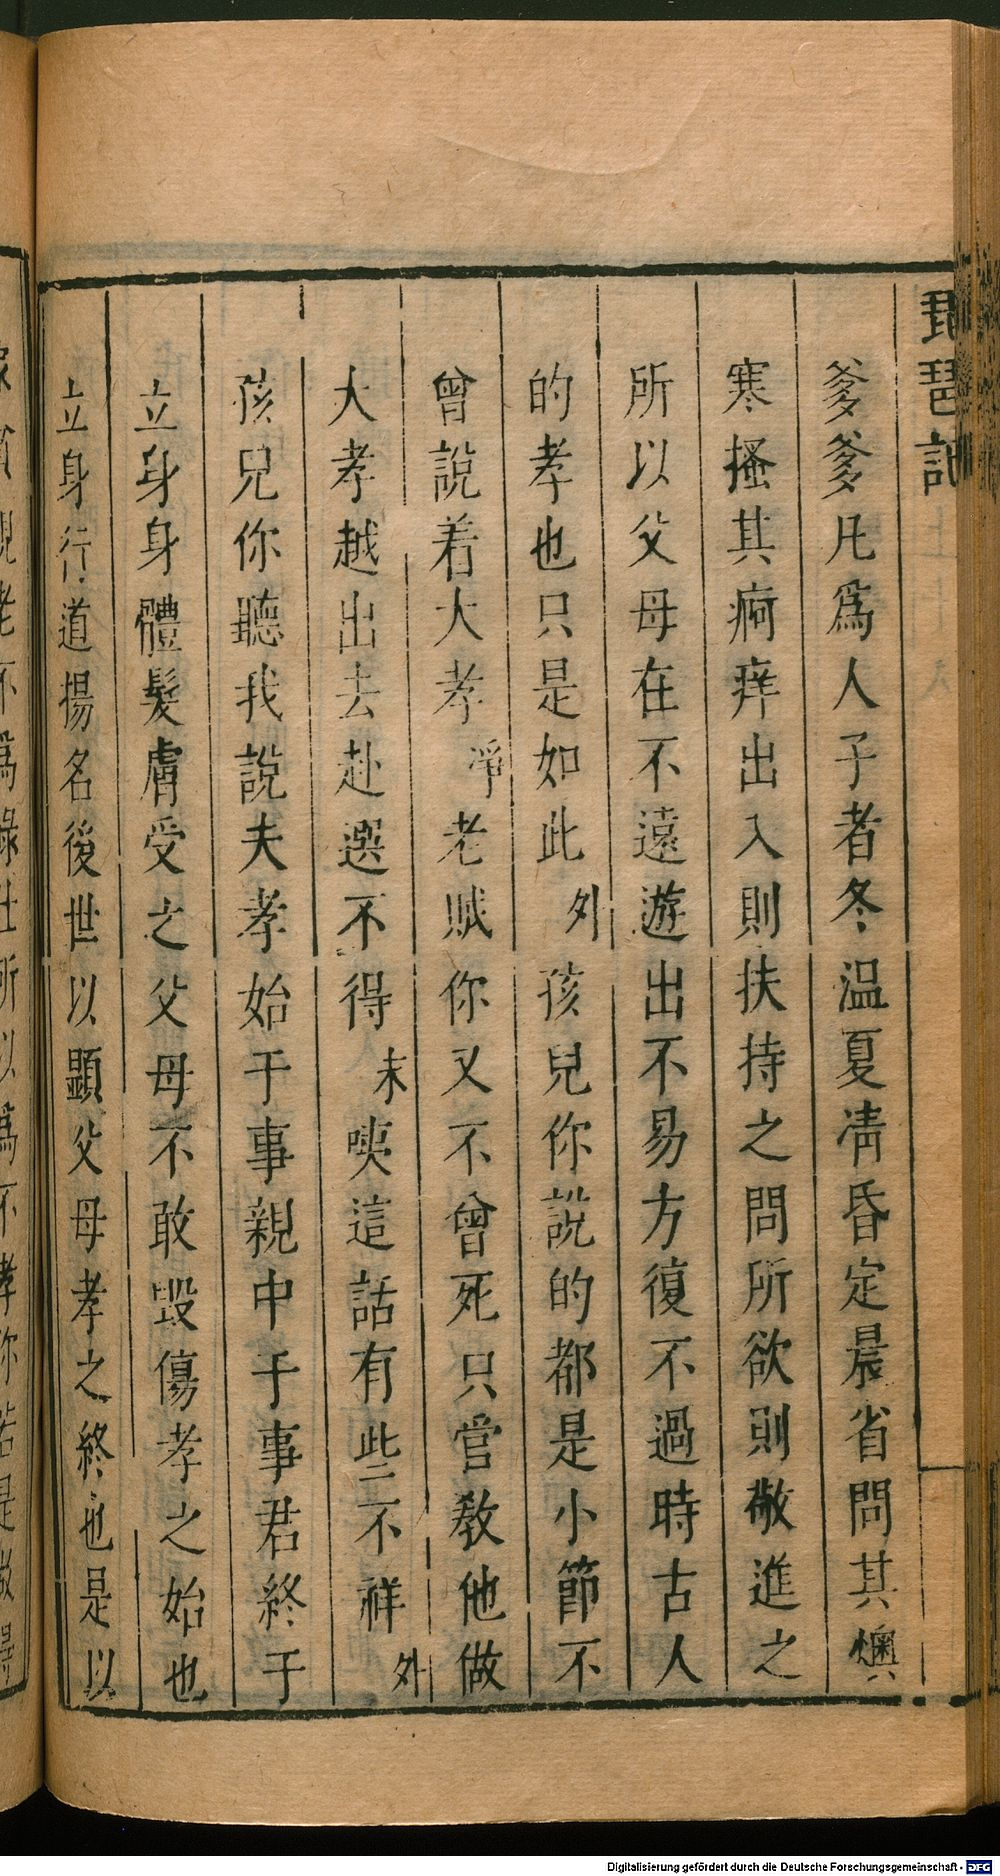 琵琶記
爹爹凡爲人子者冬温夏凊昏定晨省問其燠
寒搔其疴痒出入則扶持之問所欲則敬進之
所以父母在不遠遊出不易方復不過時古人
的孝也只是如此外孩兒你說的都是小節不
曾說着大孝凈老賊你又不曾死只管教他做
大孝越出去赴選不得末咦這話有些不祥外
孩兒你聽我說夫孝始于事親中于事君終于
立身身體髮膚受之父母不敢毀傷孝之始也
立身行道揚名後世以顯父母孝之終也是以
親老不爲祿仕所以爲不孝你若是做得
Digitalisierung gefördert durch die Deutsche Forschungsgemeinschaft - DFG